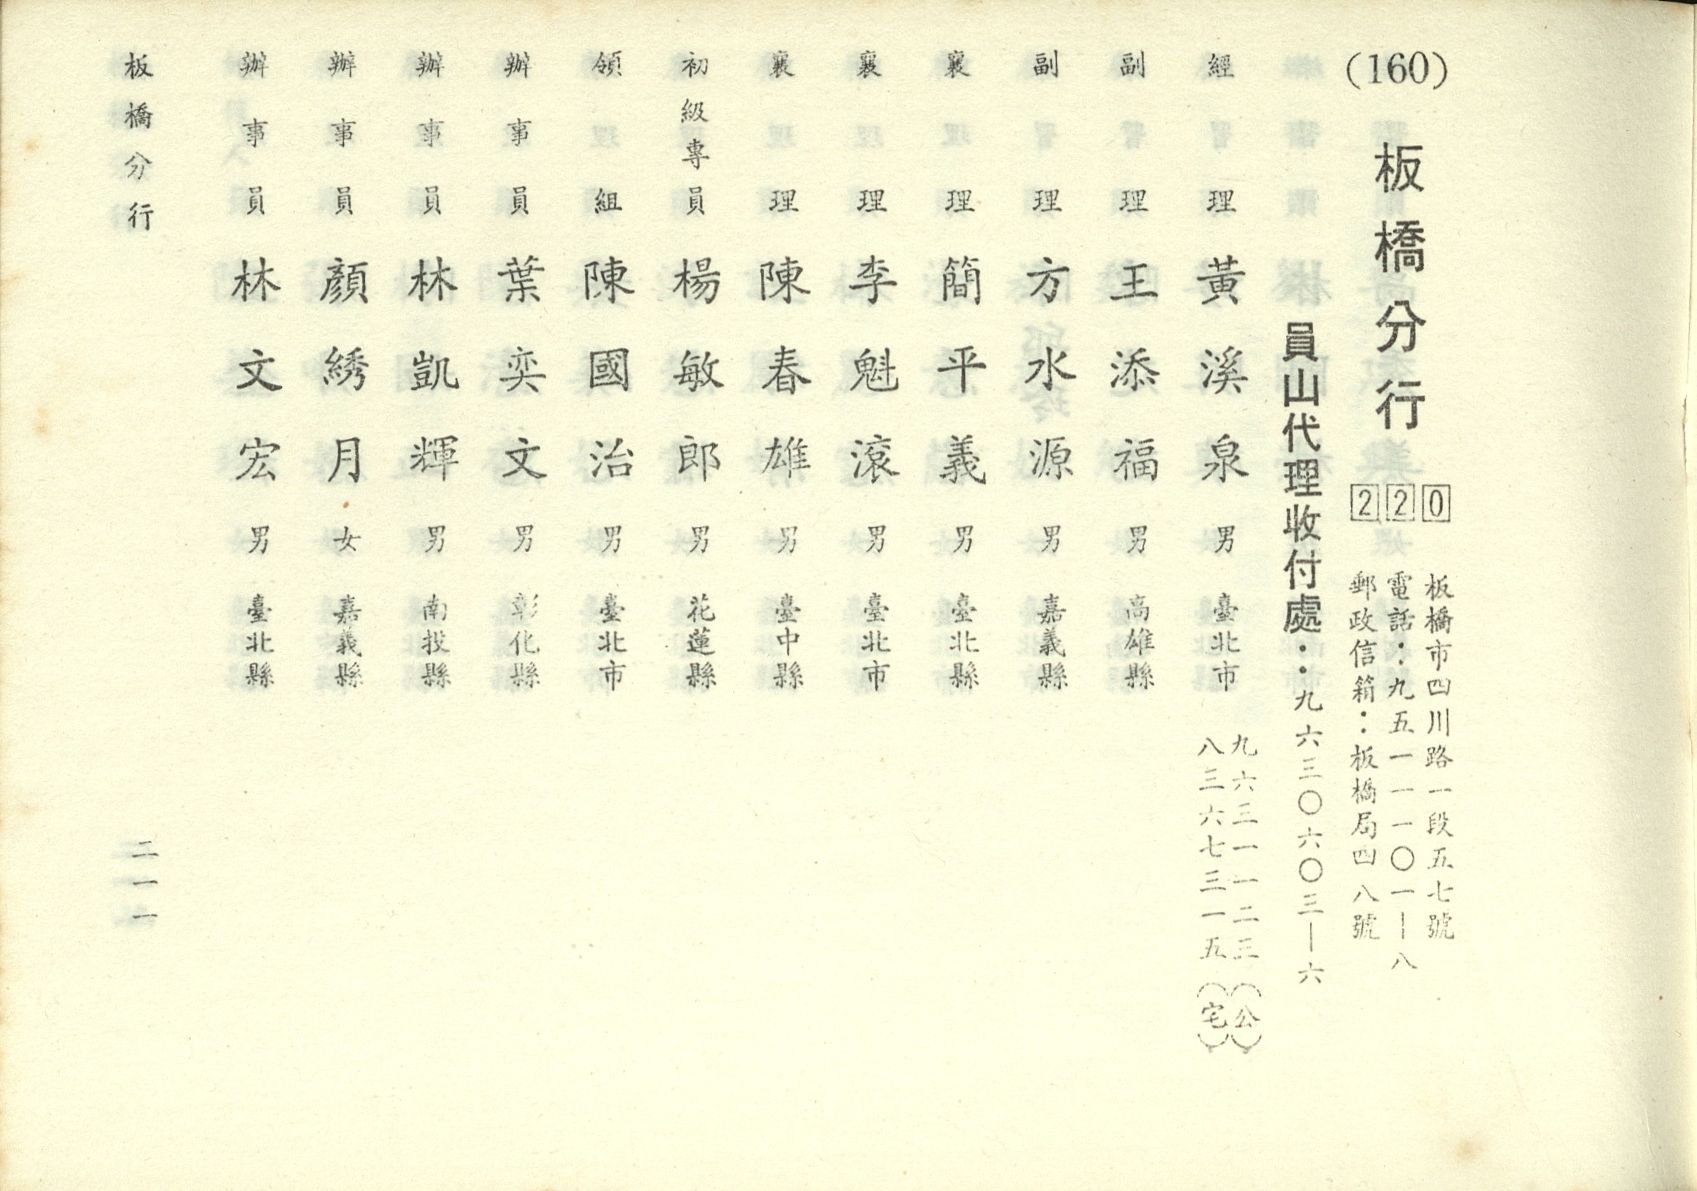 (160)
板橋分行
220
板橋市四川路一段五七號
電話：九五一一一〇一—八
郵政信箱：板橋局四八號
員山代理收付處：九六三〇六〇三—六
經理 黃溪泉 男 臺北市 九六三一一二三（公）
八三六七三一五（宅）
副理 王添福 男 高雄縣
副理 方水源 男 嘉義縣
襄理 簡平義 男 臺北縣
襄理 李魁滾 男 臺北市
襄理 陳春雄 男 臺中縣
初級專員 楊敏郎 男 花蓮縣
領組 陳國治 男 臺北市
辦事員 葉奕文 男 彰化縣
辦事員 林凱輝 男 南投縣
辦事員 顏綉月 女 嘉義縣
辦事員 林文宏 男 臺北縣
板橋分行
二一一